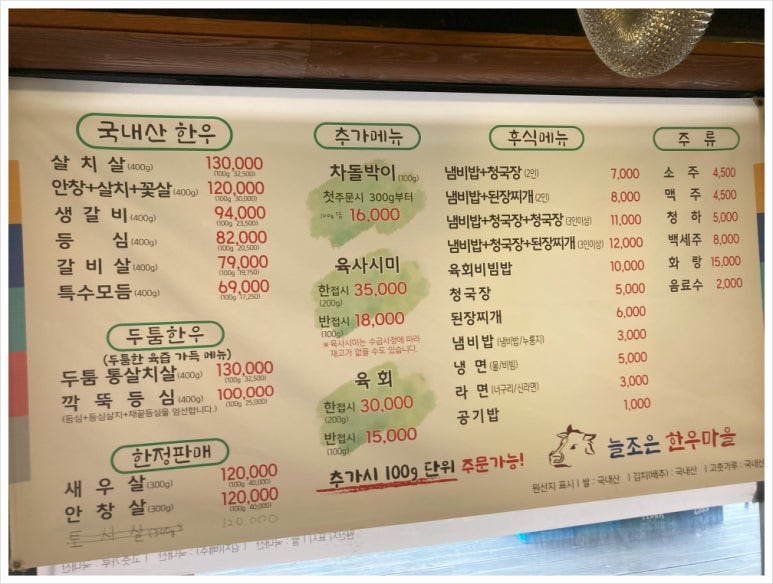 국내산 한우
살 치 살 (400g) 130,000
(100g 32,500)
안창+살치+꽃살 (400g) 120,000
(100g 30,000)
생 갈 비 (400g) 94,000
(100g 23,500)
등 심 (400g) 82,000
(100g 20,500)
갈 비 살 (400g) 79,000
(100g 19,750)
특수모듬 (400g) 69,000
(100g 17,250)
두툼한우
(두툼한 육즙 가득 메뉴)
두툼 통살치살 (400g) 130,000
(100g 32,500)
깍 뚝 등 심 (400g) 100,000
(100g 25,000)
(등심+등심살치+채끝등심을 엄선합니다.)
한정판매
새 우 살 (300g) 120,000
(100g 40,000)
안 창 살 (300g) 120,000
(100g 40,000)
토 시 살 (300g) 120,000
추가메뉴
차돌박이 (100g)
첫주문시 300g부터
100g 당 16,000
육사시미
한접시 35,000
(200g)
반접시 18,000
(100g)
※육사시미는 수급사정에 따라
재고가 없을 수도 있습니다.
육 회
한접시 30,000
(200g)
반접시 15,000
(100g)
추가시 100g 단위 주문가능!
후식메뉴
냄비밥+청국장 (2인) 7,000
냄비밥+된장찌개 (2인) 8,000
냄비밥+청국장+청국장 (3인이상) 11,000
냄비밥+청국장+된장찌개 (3인이상) 12,000
육회비빔밥 10,000
청국장 5,000
된장찌개 6,000
냄비밥 (냄비밥/누룽지) 3,000
냉 면 (물/비빔) 5,000
라 면 (너구리/신라면) 3,000
공기밥 1,000
주 류
소 주 4,500
맥 주 4,500
청 하 5,000
백세주 8,000
화 랑 15,000
음료수 2,000
늘조은 한우마을
원산지 표시 | 쌀 : 국내산 | 김치(배추) : 국내산 | 고춧가루 : 국내산